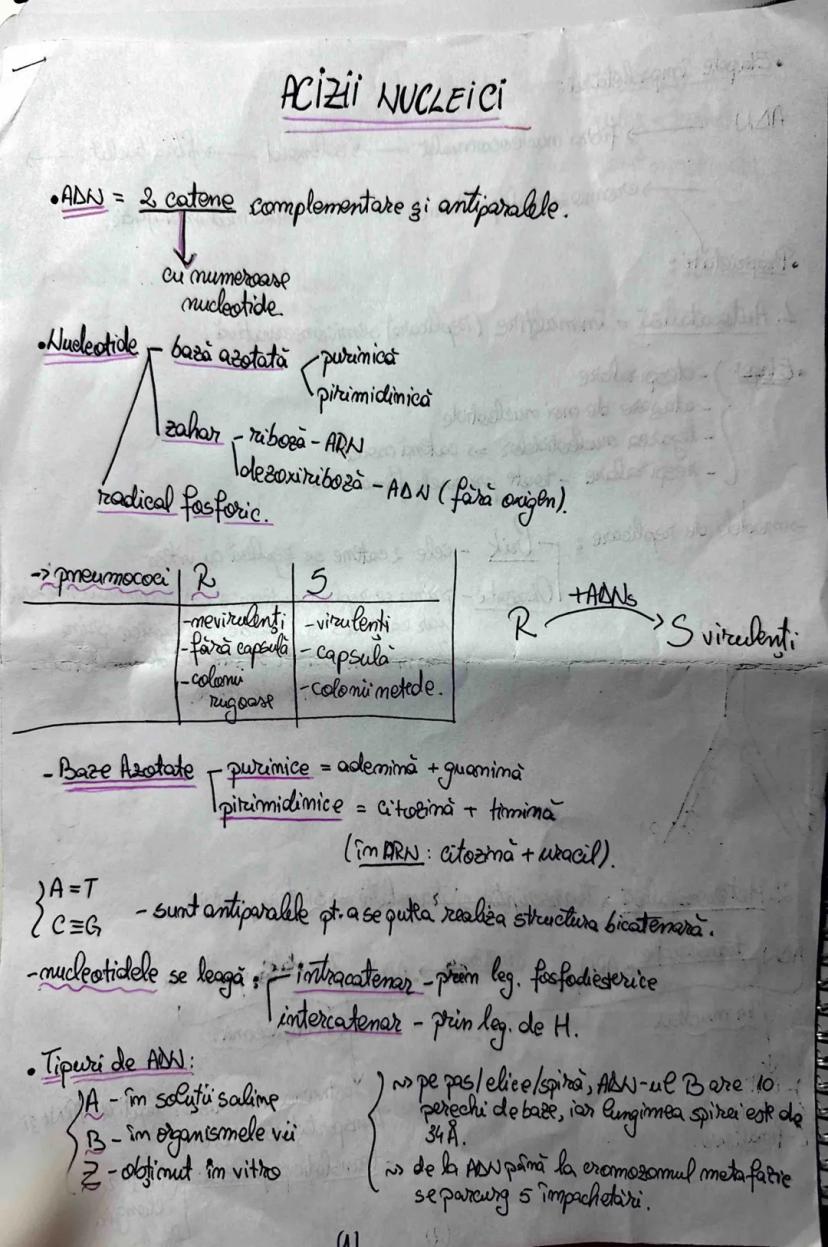 ACIZII NUCLEICI
• ADN = 2 catene complementare și antiparalele.
cu numeroase
nucleotide
• Nucleotide - bază azotată
purinică
pirimidinică
zahar - riboză - ARN
dezoxiriboză - ADN (fără oxigen).
radical fosforic.
-> pneumococi | R | S
- nevirulenți - virulenți
- fără capsulă - capsulă
- colonii - colonii netede.
rugoase
R +ADNs S virulenți
- Baze Azotate - purinice = adenină + guanină
pirimidinice = citozină + timină
(în ARN: citozină + uracil).
A = T
C ≡ G - sunt antiparalele pt. a se putea realiza structura bicatenară.
- nucleotidele se leagă: - intracatenar - prin leg. fosfodiesterice
intercatenar - prin leg. de H.
• Tipuri de ADN:
A - în soluții saline
B - în organismele vii
Z - obținut in vitro
~> pe pas/elice/spiră, ADN-ul B are 10
perechi de baze, iar lungimea spirei este de
34 Å.
~> de la ADN până la cromozomul metafazic
se parcurg 5 împachetări.
(1)